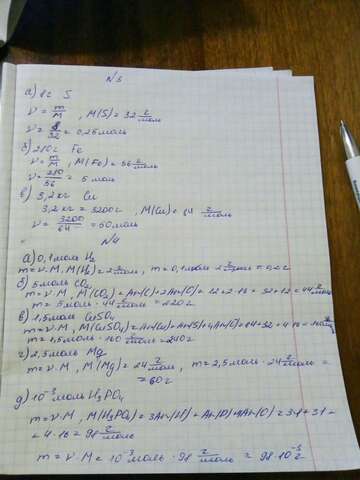 N3
а) 8г S
ν = m/M , M(S) = 32 г/моль
ν = 8/32 = 0,25 моль
б) 280г Fe
ν = m/M, M(Fe) = 56 г/моль
ν = 280/56 = 5 моль
в) 3,2 кг Cu
3,2 кг = 3200г , M(Cu) = 64 г/моль
ν = 3200/64 = 50 моль
N4
а) 0,1 моль H2
m = ν·M, M(H2) = 2 г/моль, m = 0,1 моль·2 г/моль = 0,2 г
б) 5 моль CO2
m = ν·M, M(CO2) = Ar(C)+2Ar(O) = 12+2·16 = 32+12 = 44 г/моль
m = 5 моль · 44 г/моль = 220г
в) 1,5 моль CuSO4
m = ν·M, M(CuSO4) = Ar(Cu)+Ar(S)+4Ar(O) = 64+32+4·16 = 160 г/моль
m = 1,5 моль · 160 г/моль = 240г
г) 2,5 моль Mg
m = ν·M, M(Mg) = 24 г/моль, m = 2,5 моль · 24 г/моль =
= 60г
д) 10⁻³ моль H3PO4
m = ν·M, M(H3PO4) = 3Ar(H)+Ar(P)+4Ar(O) = 3·1+31+
+4·16 = 98 г/моль
m = ν·M = 10⁻³ моль · 98 г/моль = 98·10⁻³ г